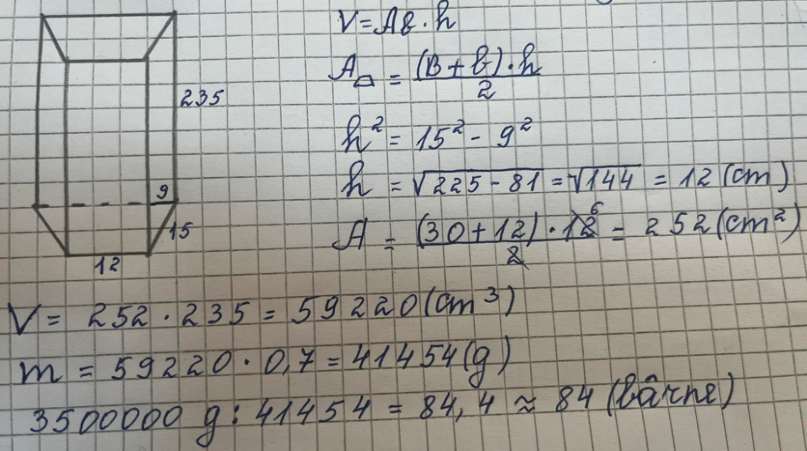 V = Ab · h
A⏢ = (B + b) · h / 2
235
h² = 15² - 9²
9
h = √225 - 81 = √144 = 12 (cm)
15
A = (30 + 12) · 12 6 / 2 = 252 (cm²)
12
V = 252 · 235 = 59220 (cm³)
m = 59220 · 0,7 = 41454 (g)
3500000 g : 41454 = 84,4 ≈ 84 (bârne)